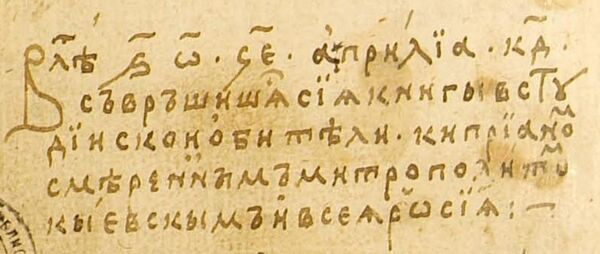 В лѣⷮ ҂ѕ҃ ѡ҃ · ҁ҃е · априлїа · к҃д ·
съвръшишѧⷭ сїѧ книгы в стУ
дїискои обитѣли · кипрїаноⷨ
смѣреннымъ митрополитоⷨ
кыевскымъ и всеѧ рѡсїѧ :—